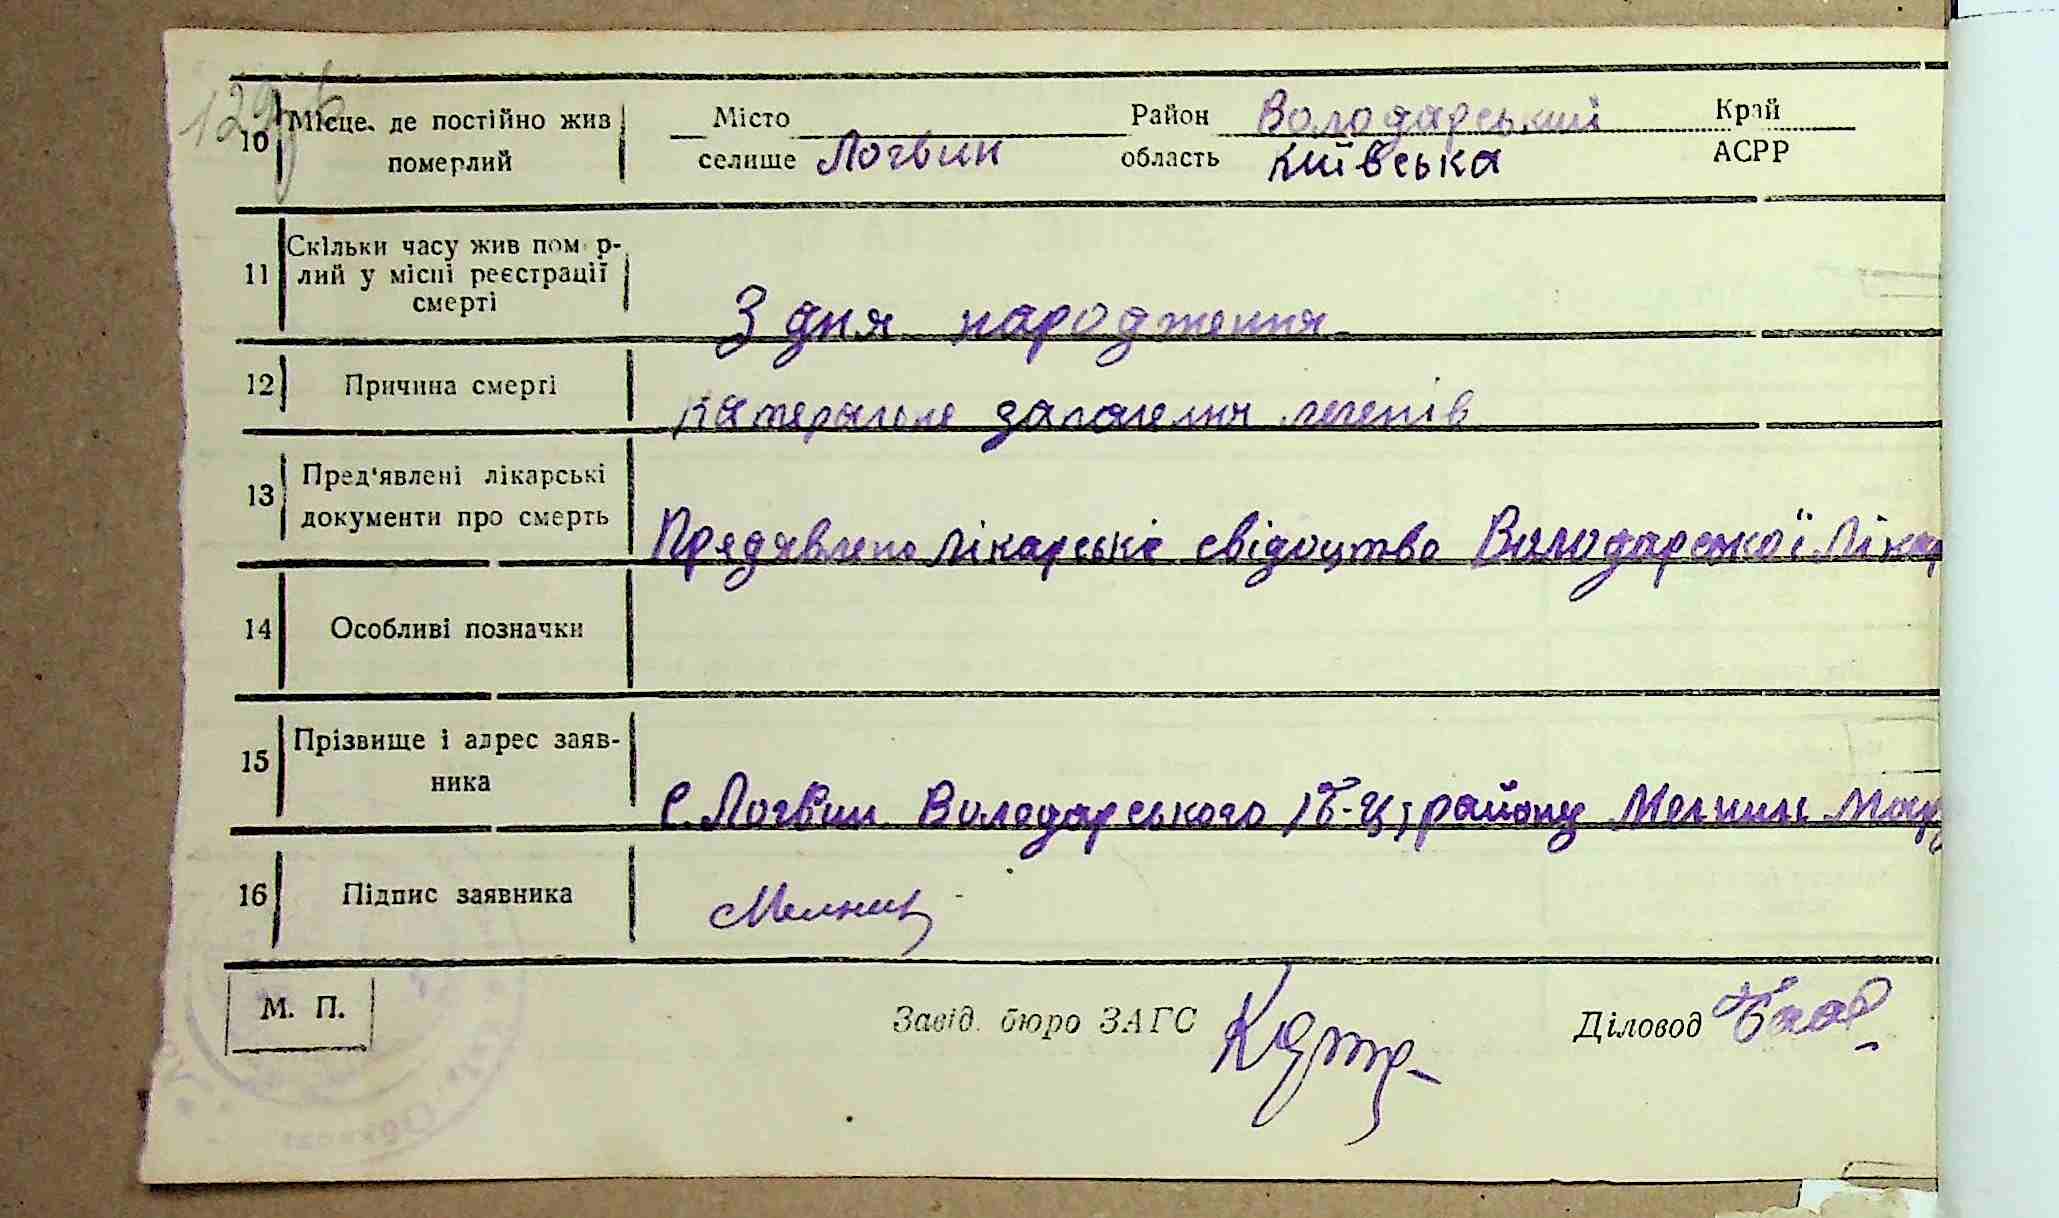 Місто Район Володарський Край
10 Місце де постійно жив померлий
селище Логвин область Київська АСРР
11 Скільки часу жив помер-
лий у місці реєстрації
смерті
З дня народження
12 Причина смерті
Катеральне запалення легенів
13 Пред'явлені лікарські
документи про смерть
Предявлено лікарське свідоцтво Володарської Лікар
14 Особливі позначки
15 Прізвище і адрес заяв-
ника
С. Логвин Володарського району
16 Підпис заявника
М. П. Завід. бюро ЗАГС Діловод